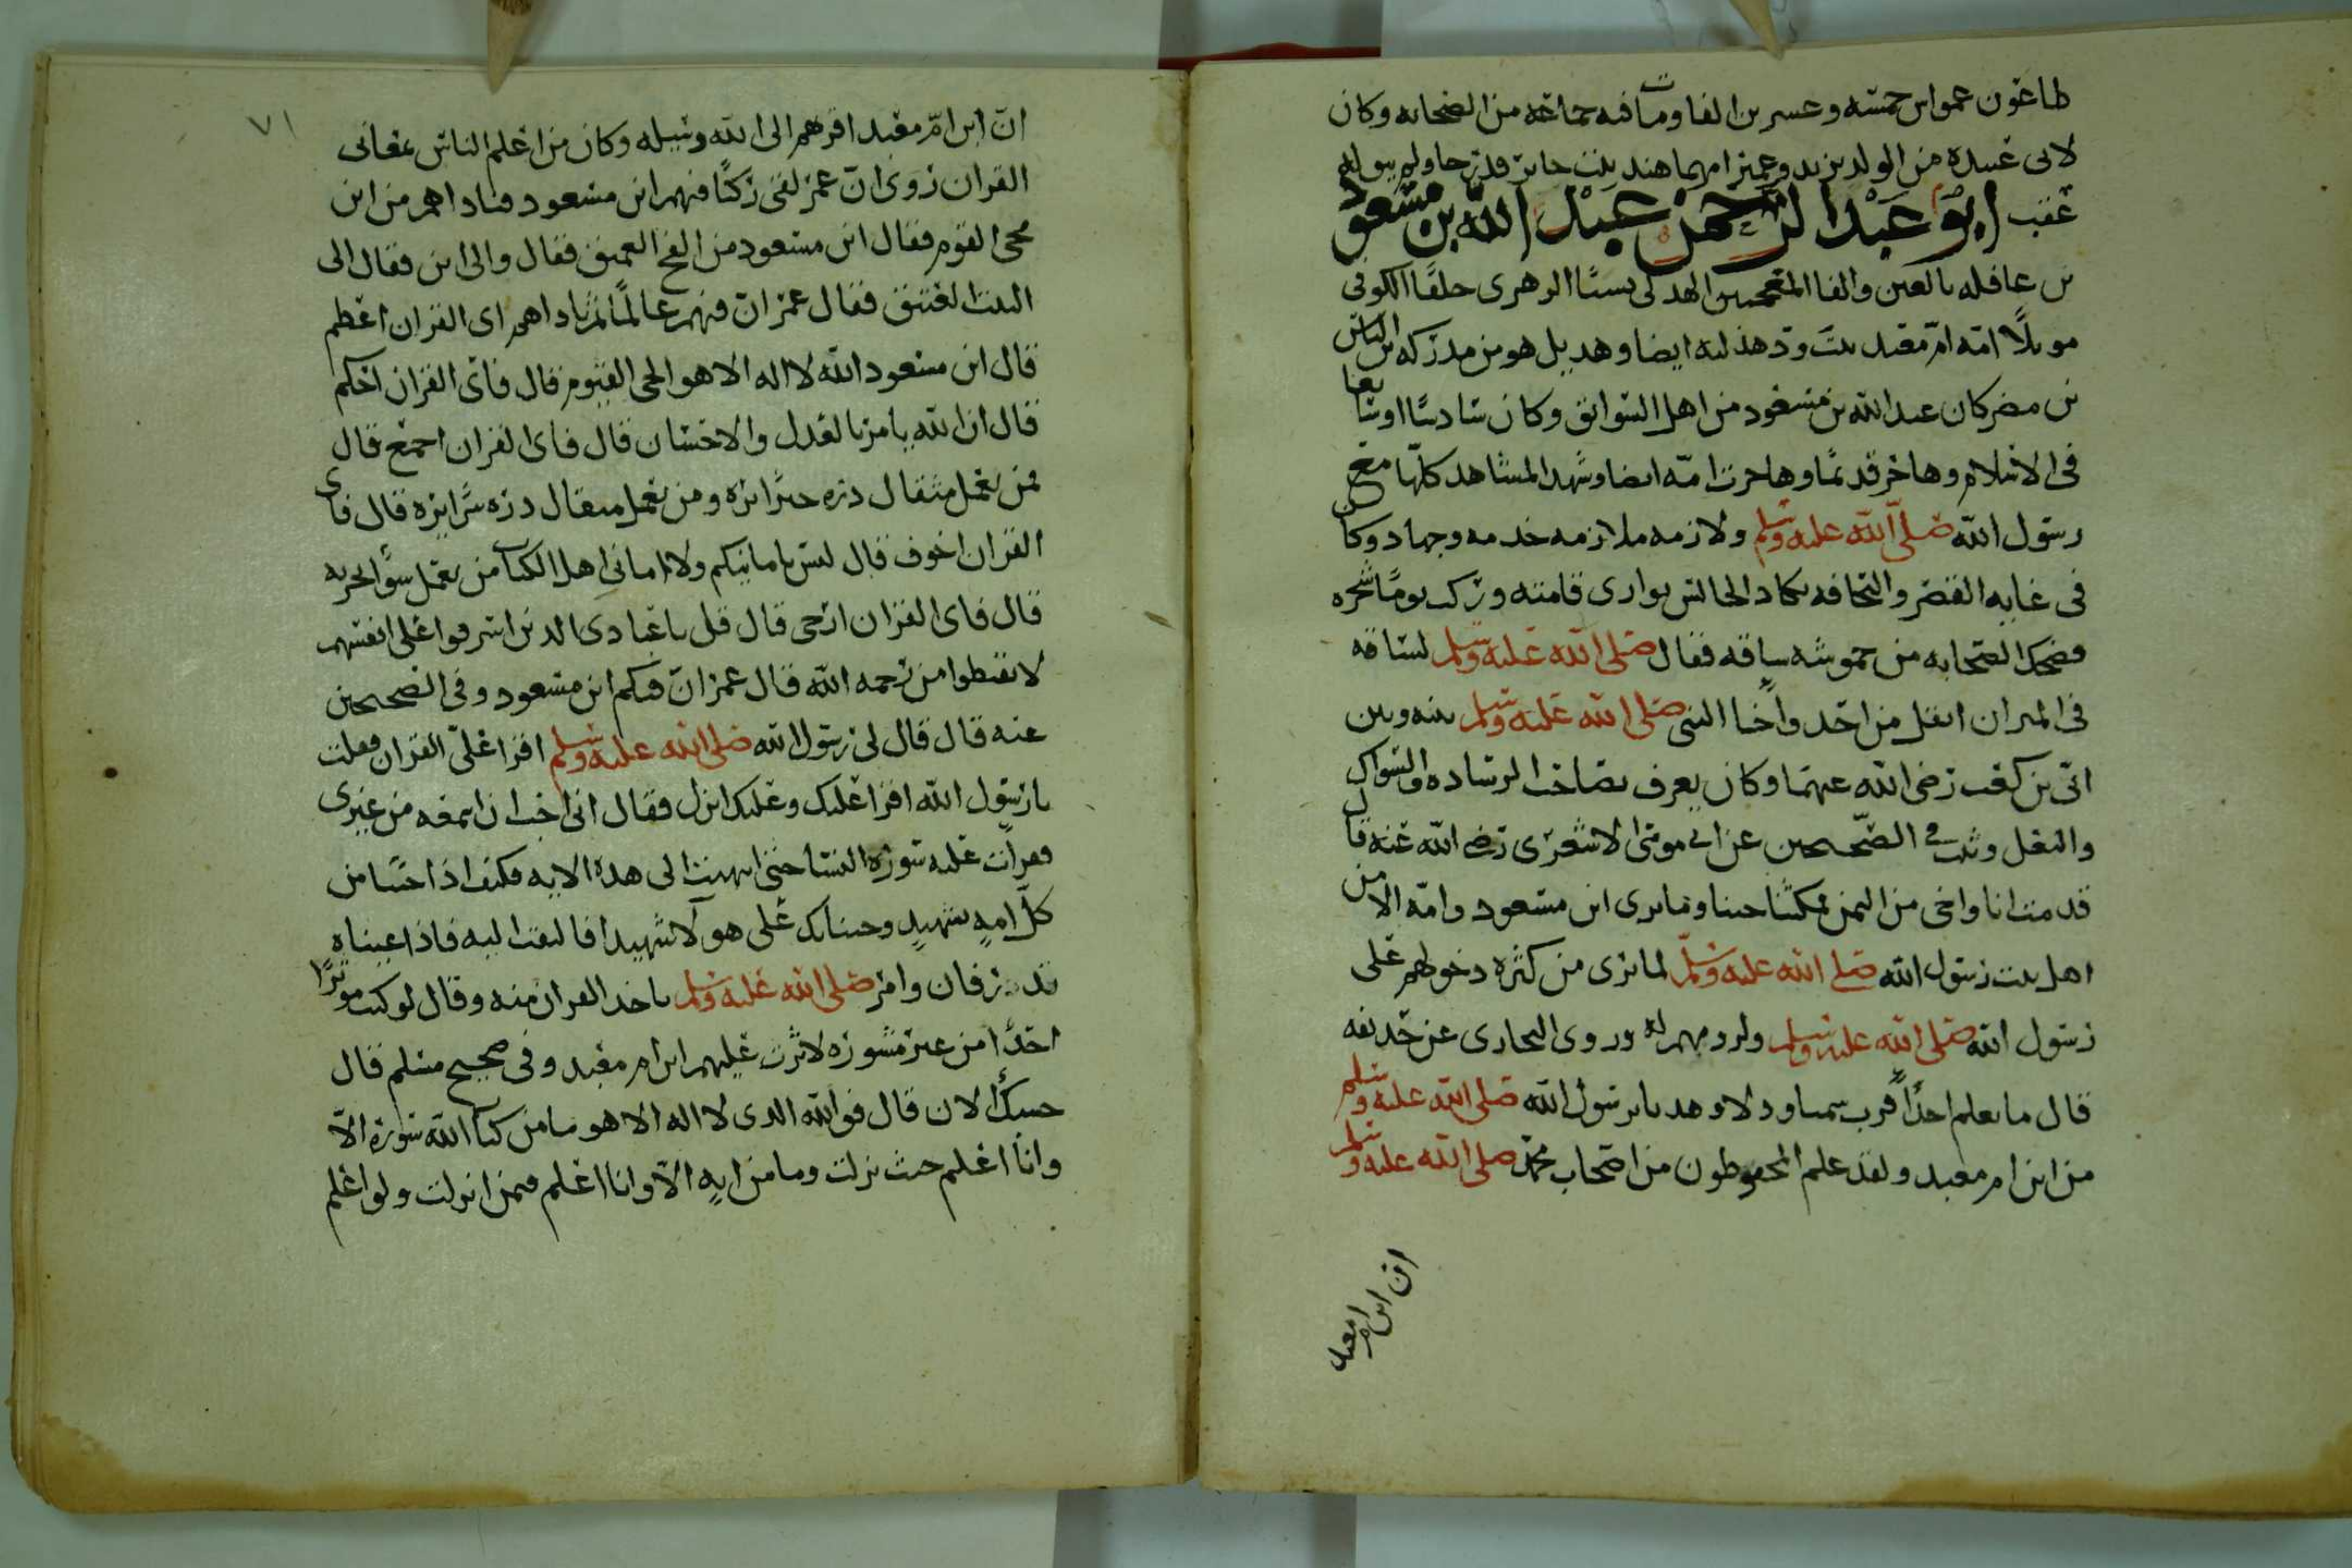 طاعون عمواس خمسه وعسرين الفا ومات فيه جماعة من الصحابه وكان
لابى عبيدة من الولد يزيد وعمير امهما هند بنت جابر فدرجا ولم يبق له
عقب ابو عبد الرحمن عبد الله بن مسعود
بن غافله بالغين والفا المعجمتين الهذلى نسبًا الزهرى حلفًا الكوفى
موئلًا امّه امّ معبد بنت ودّ هذليه ايضا وهديل هو بن مدركه بن الياس
بن مضر كان عبد الله بن مسعود من اهل السوابق وكان سادسًا او سابعا
فى الاسلام وهاجر قديمًا وهاجرت امّه ايضا وشهد المشاهد كلّها مع
رسول الله صلى الله عليه وسلم ولازمه ملازمه خدمه وجهاد وكان
فى غايه القصر والنحافه يكاد الجالس يوارى قامته وركب يومًا شجره
فضحك الصحابه من حموشه ساقه فقال صلى الله عليه وسلم لساقه
فى الميزان اثقل من احد وآخا النبى صلى الله عليه وسلم بينه وبين
ابّى بن كعب رضى الله عنهما وكان يعرف بصاحب الوساده والسواك
والنعل وثبت فى الصّحيحين عن ابى موسى الاشعرى رضى الله عنه قال
قدمت انا واخى من اليمن فمكثنا حينا وما نرى ابن مسعود وامّه الا من
اهل بيت رسول الله صلى الله عليه وسلم لما نرى من كثرة دخولهم على
رسول الله صلى الله عليه وسلم ولزومهم له وروى البخارى عن حذيفه
قال ما نعلم احدًا اقرب سمتا ودلا وهديا برسول الله صلى الله عليه وسلم
من ابن ام معبد ولقد علم المحفوظون من اصحاب محمد صلى الله عليه وسلم
ان ابن ام معبد
٧١
انّ ابن امّ معبد اقربهم الى الله وسيله وكان من اعلم الناس بمعانى
القران روى انّ عمر لقى ركبًا فيهم ابن مسعود فناداهم من اين
مجى القوم فقال ابن مسعود من الفج العميق فقال والى اين فقال الى
البيت العتيق فقال عمر انّ فيهم عالمًا ثم ناداهم اى القران اعظم
قال ابن مسعود الله لا اله الا هو الحى القيوم قال فاى القران احكم
قال ان الله يامر بالعدل والاحسان قال فاى القران اجمع قال
فمن يعمل مثقال ذره خيرًا يره ومن يعمل مثقال ذره شرًا يره قال فاى
القران اخوف قال ليس بامانيكم ولا امانى اهل الكتاب من يعمل سوًا يجز به
قال فاى القران ارجى قال قل يا عبادى الذين اسرفوا على انفسهم
لا تقنطوا من رحمه الله قال عمر انّ فيكم ابن مسعود وفى الصحيحين
عنه قال قال لى رسول الله صلى الله عليه وسلم اقرا علىّ القران فقلت
يا رسول الله اقرا عليك وعليك انزل فقال انى احب ان اسمعه من غيرى
فقرأت عليه سورة النسا حتى انتهيت الى هذه الايه فكيف اذا جئنا من
كلّ امةٍ بشهيدٍ وجئنا بك على هولآ شهيدا فالتفت اليه فاذا عيناه
تذرفان وامر صلى الله عليه وسلم باخذ القران منه وقال لو كنت مومّرًا
احدًا من غير مشورة لامّرت عليهم ابن ام معبد وفى صحيح مسلم قال
حسبك الان قال فوالله الذى لا اله الا هو ما من كتاب الله سورة الّا
وانا اعلم حيث نزلت وما من ايةٍ الّا وانا اعلم فيمن انزلت ولو اعلم